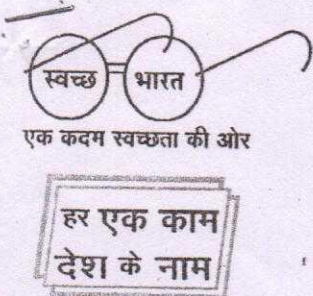 स्वच्छ भारत
एक कदम स्वच्छता की ओर
हर एक काम
देश के नाम